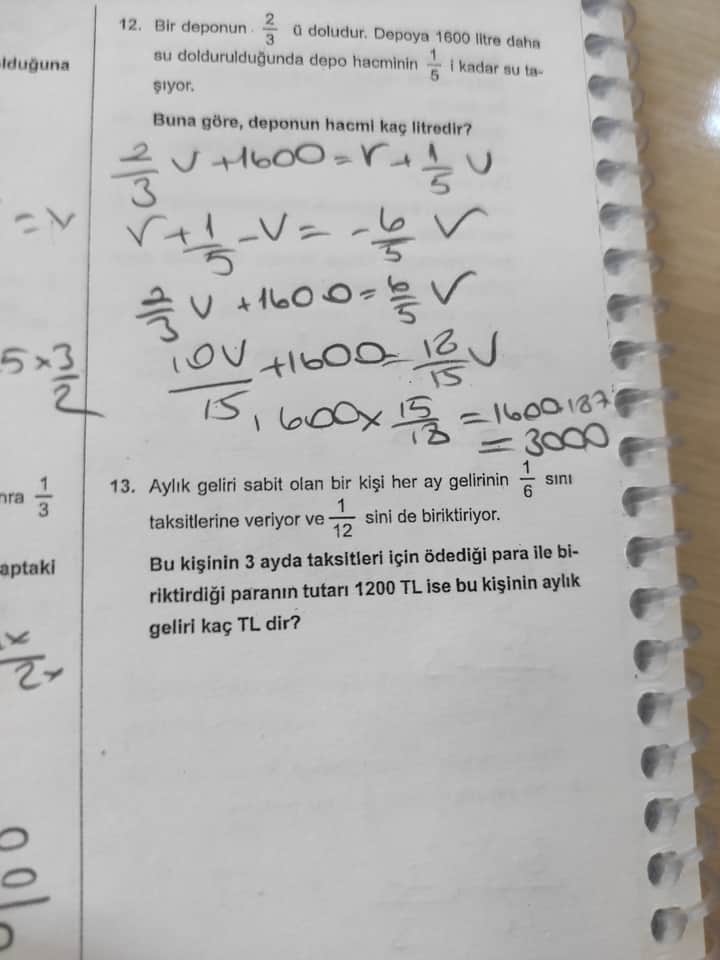 lduğuna
= V
5 x 3/2
nra 1/3
aptaki
12. Bir deponun 2/3 ü doludur. Depoya 1600 litre daha
su doldurulduğunda depo hacminin 1/5 i kadar su ta-
şıyor.
Buna göre, deponun hacmi kaç litredir?
2/3 V + 1600 = V + 1/5 V
V + 1/5 - V = - 6/5 V
2/3 V + 1600 = 6/5 V
10V/15 + 1600 = 18/15 V
1600 x 15/18 = 1600.187
= 3000
13. Aylık geliri sabit olan bir kişi her ay gelirinin 1/6 sını
taksitlerine veriyor ve 1/12 sini de biriktiriyor.
Bu kişinin 3 ayda taksitleri için ödediği para ile bi-
riktirdiği paranın tutarı 1200 TL ise bu kişinin aylık
geliri kaç TL dir?